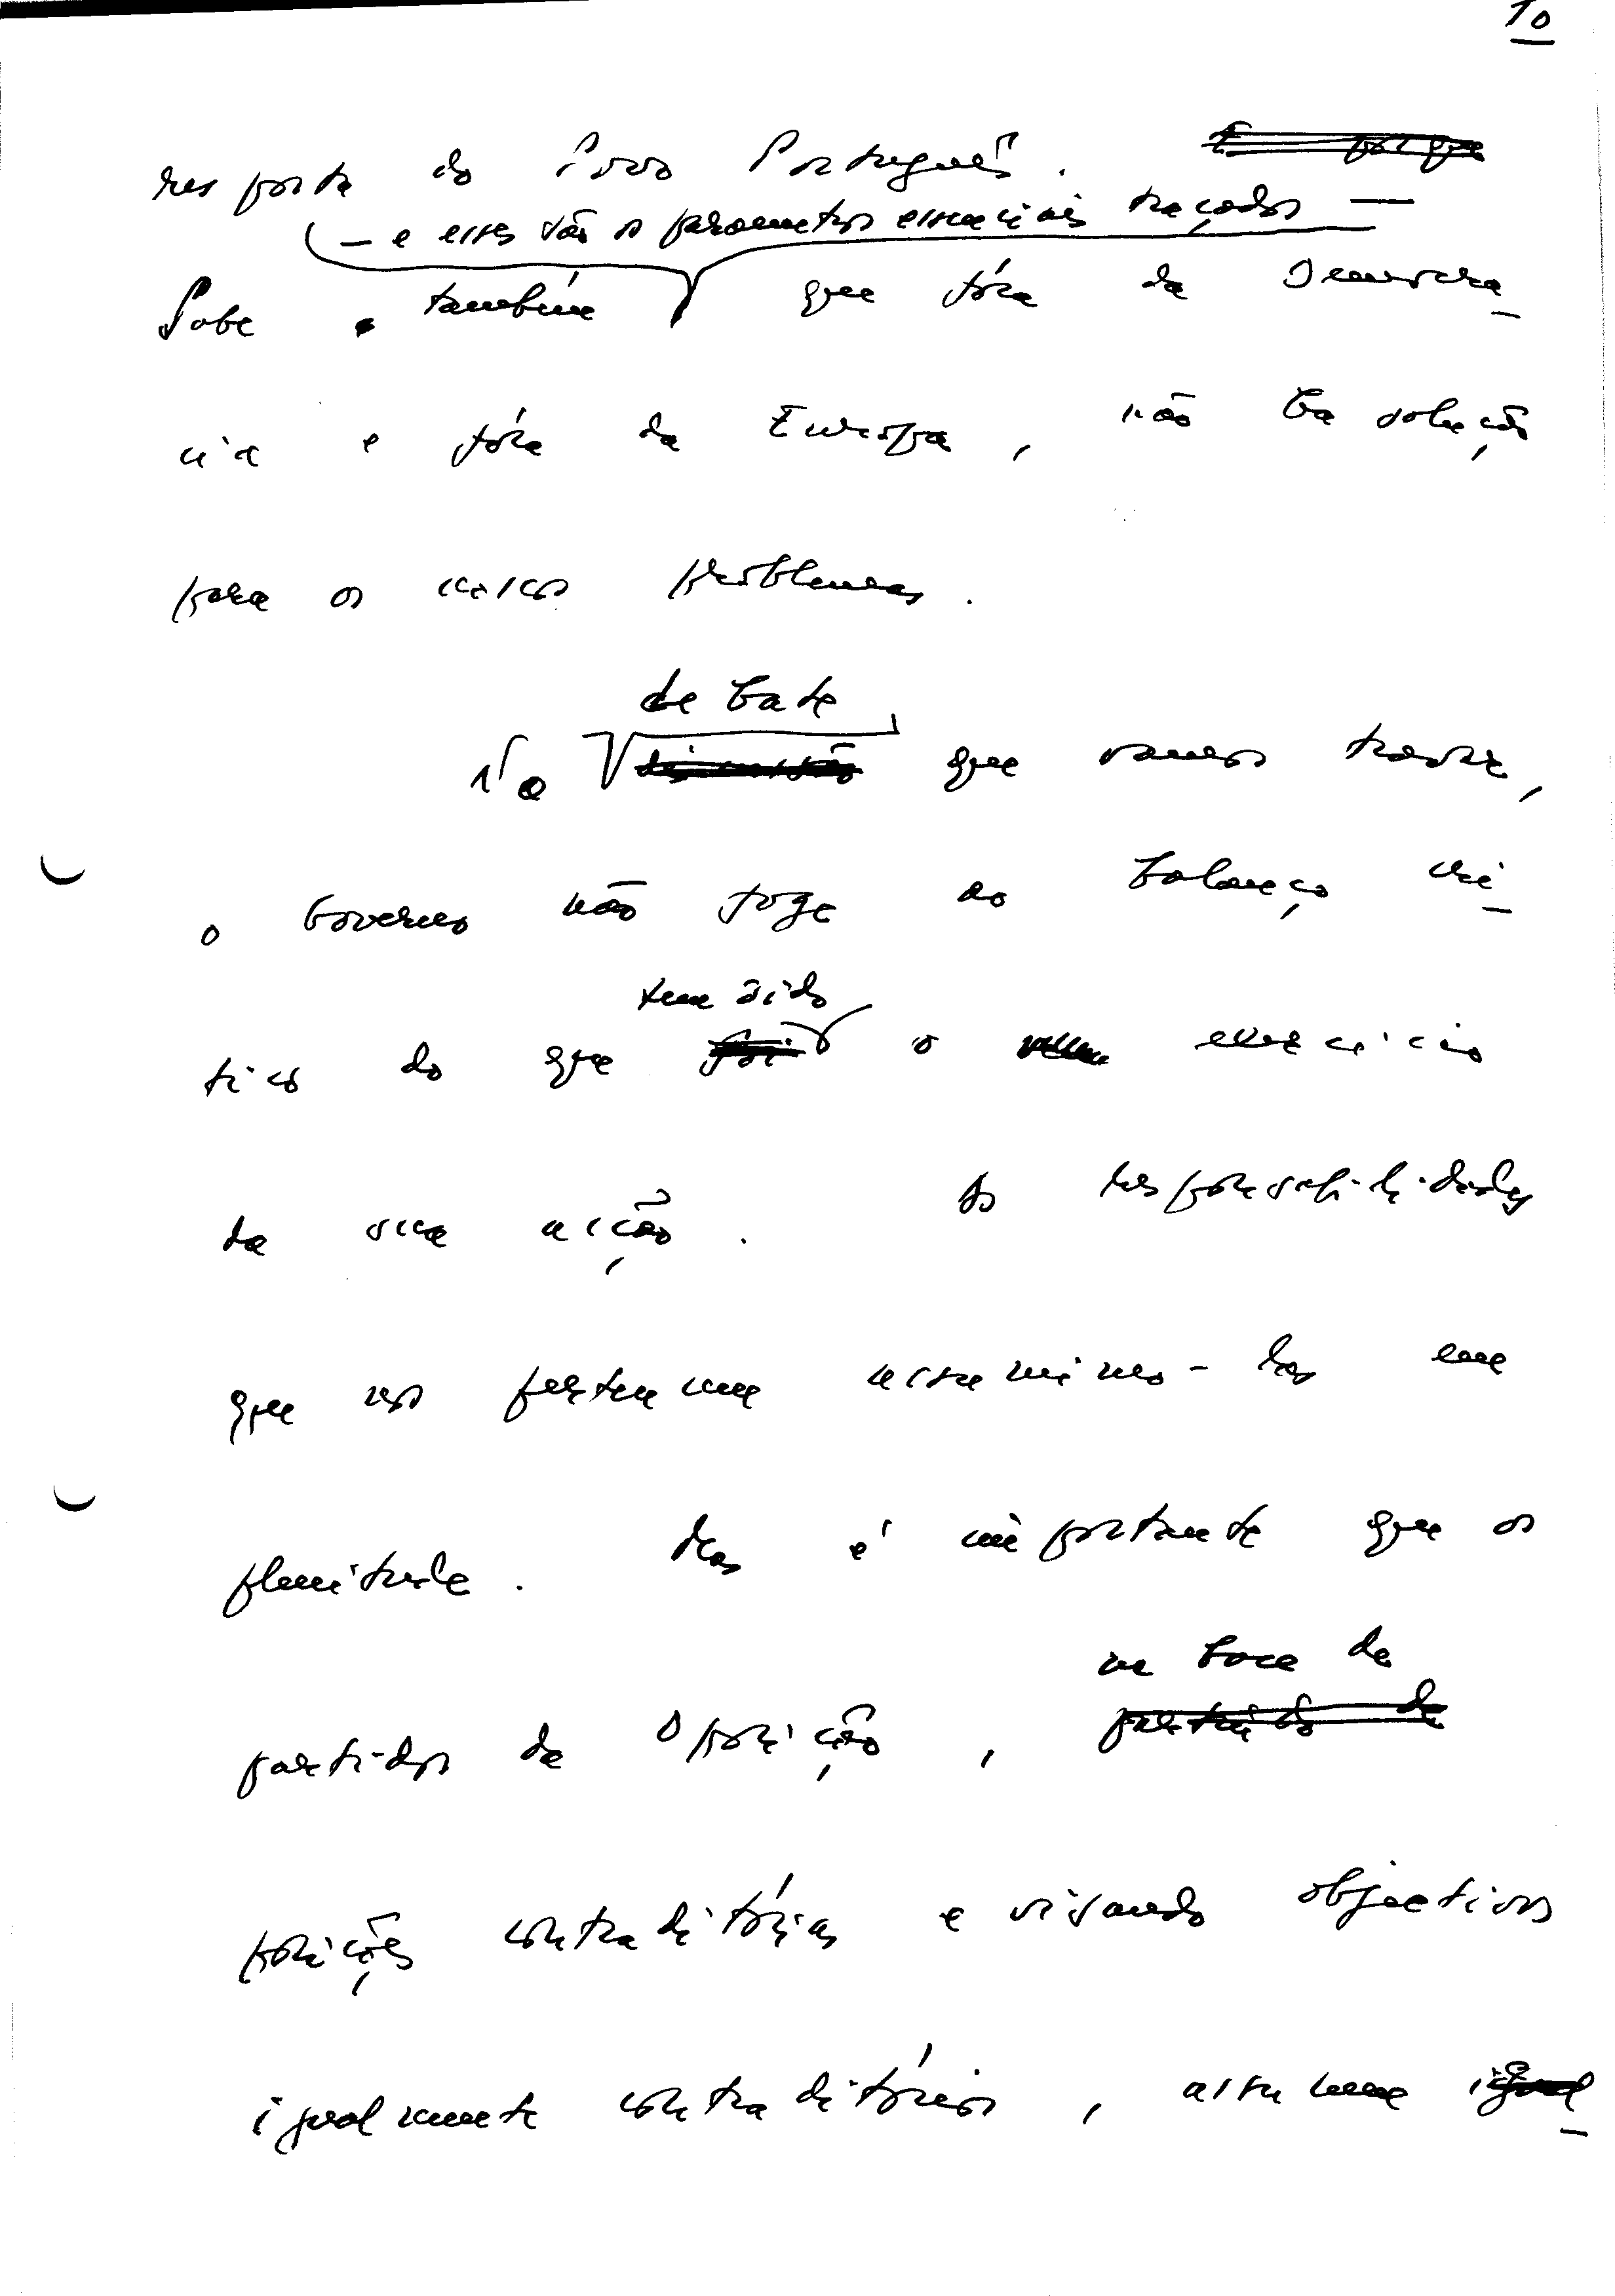 10
resposta do Povo Português.
— e esses são os parametros essenciais traçados —
Sabe também que fóra da Democra-
cia e fóra da Europa, não há solução
para os nossos problemas.
debate
No discussão que vamos travar,
o Governo não foge ao balanço crí-
tem sido
tico do que foi o exercício
da sua acção. As responsabilidades
que nos pertencem assumimo-las em
plenitude. Mas é importante que os
na base de
partidos da Oposição, partindo de
posições contraditórias e visando objectivos
igualmente contraditórios, assumam igual-